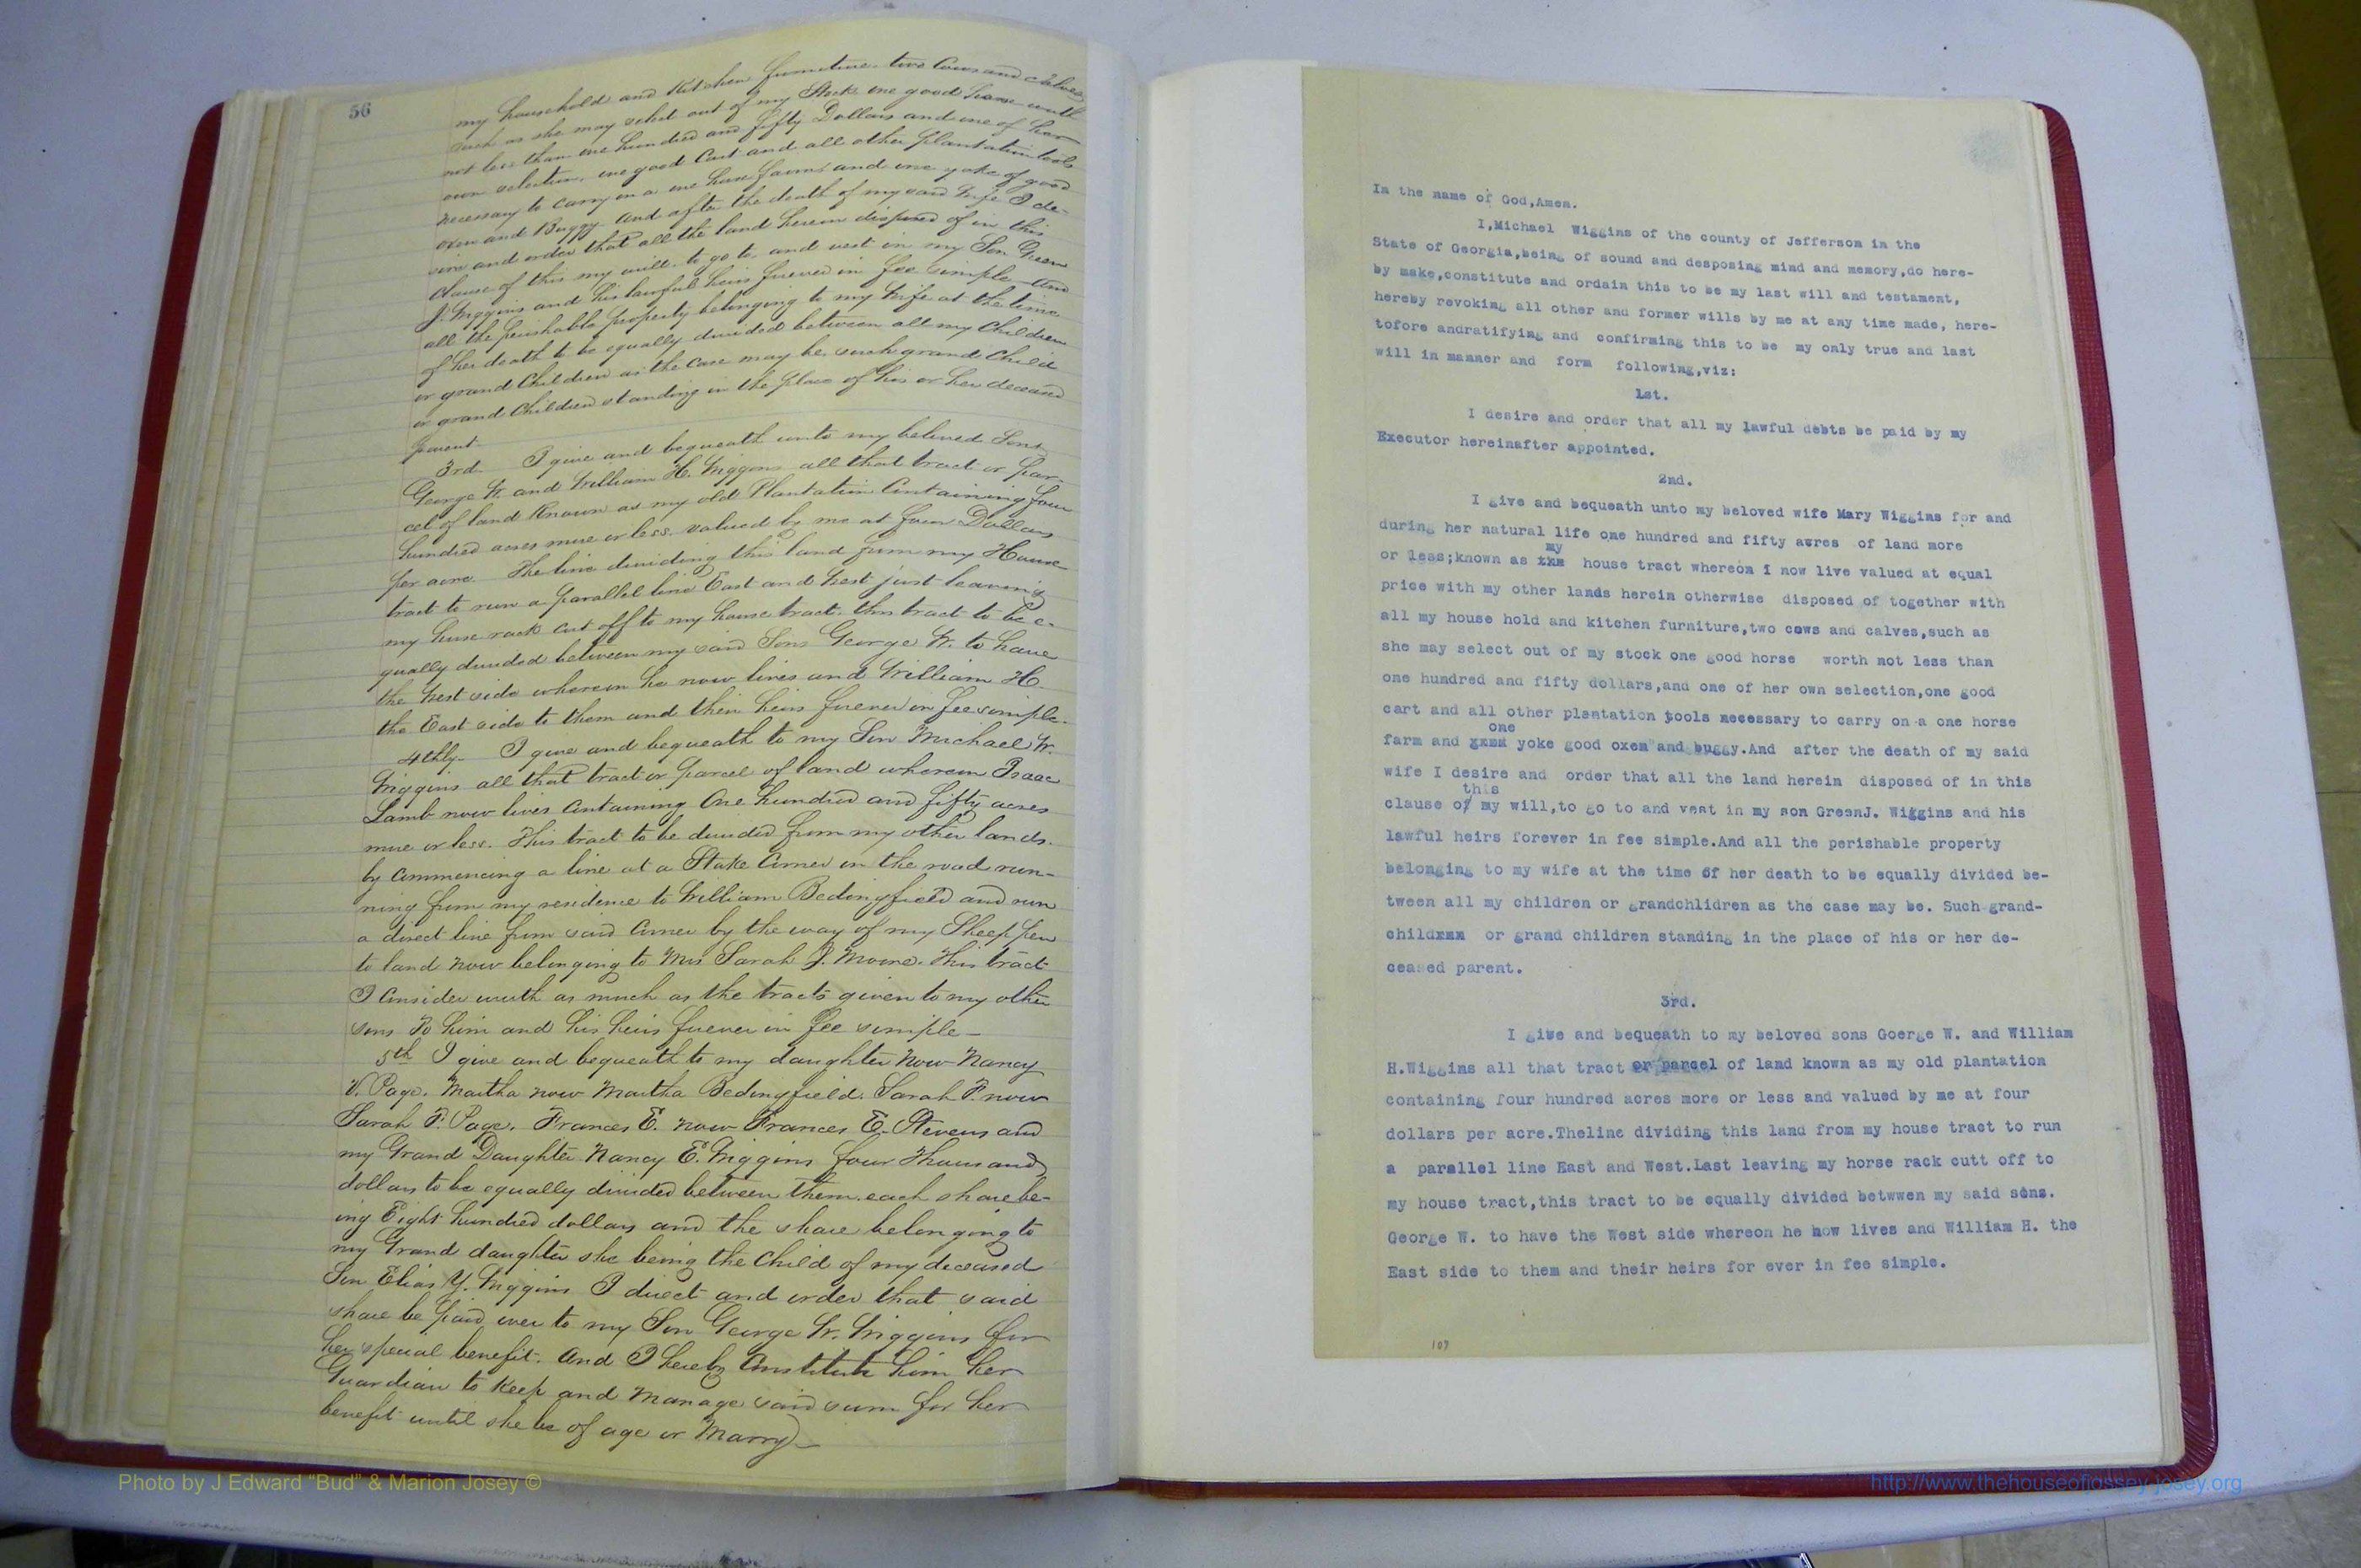 56
my household and Kitchen furniture two Cows and Calves
such as she may select out of my Stock one good horse worth
not less than one hundred and fifty Dollars and one of her
own selection, one good Cart and all other plantation tools
necessary to carry on a one horse farm and one yoke of good
oxen and Buggy. And after the death of my said wife I de-
sire and order that all the land herein disposed of in this
clause of this my will, to go to, and vest in my Son Green
J. Wiggins and his lawful heirs forever in fee simple and
all the perishable property belonging to my Wife at the time
of her death to be equally divided between all my Children
or grand Children as the case may be, such grand Child
or grand Children standing in the place of his or her deceased
parent.
3rd I give and bequeath unto my beloved Sons
George W. and William H. Wiggins all that tract or par-
cel of land Known as my old Plantation Containing four
hundred acres more or less. valued by me at four Dollars
per acre. The line dividing this land from my House
tract to run a parallel line East and West just leaving
my horse rack cut off to my house tract. this tract to be e-
qually divided between my said Sons George W. to have
the West side whereon he now lives and William H.
the East side to them and their heirs forever in fee simple.
4thly. I give and bequeath to my Son Michael W.
Wiggins all that tract or parcel of land whereon Isaac
Lamb now lives Containing One hundred and fifty acres
more or less. This tract to be divided from my other lands.
by Commencing a line at a Stake Corner in the road run-
ning from my residence to William Bedingfield and run
a direct line from said Corner by the way of my Sheep pen
to land now belonging to Mrs Sarah J. Moore. This tract
I Consider worth as much as the tracts given to my other
sons To him and his heirs forever in fee simple-
5th I give and bequeath to my daughter now Nancy
V. Page. Martha now Martha Bedingfield. Sarah F. now
Sarah F. Page. Frances E. now Frances E. Stevens and
my Grand Daughter Nancy E. Wiggins four Thousand
dollars to be equally divided between them. each share be-
ing Eight hundred dollars and the share belonging to
my Grand daughter she being the Child of my deceased
Son Elias Y. Wiggins I direct and order that said
share be paid over to my Son George W. Wiggins for
her special benefit. And I hereby Constitute him her
Guardian to Keep and Manage said sum for her
benefit until she be of age or Marry-
In the name of God,Amen.
I,Michael Wiggins of the county of Jefferson in the
State of Georgia,being of sound and desposing mind and memory,do here-
by make,constitute and ordain this to be my last will and testament,
hereby revoking all other and former wills by me at any time made, here-
tofore andratifying and confirming this to be my only true and last
will in manner and form following,viz:
1st.
I desire and order that all my lawful debts be paid by my
Executor hereinafter appointed.
2nd.
I give and bequeath unto my beloved wife Mary Wiggins for and
during her natural life one hundred and fifty acres of land more
my
or less;known as xxx house tract whereon I now live valued at equal
price with my other lands herein otherwise disposed of together with
all my house hold and kitchen furniture,two cows and calves,such as
she may select out of my stock one good horse worth not less than
one hundred and fifty dollars,and one of her own selection,one good
cart and all other plantation tools necessary to carry on a one horse
one
farm and xxxx yoke good oxen and buggy.And after the death of my said
wife I desire and order that all the land herein disposed of in this
this
clause of/ my will,to go to and vest in my son GreenJ. Wiggins and his
lawful heirs forever in fee simple.And all the perishable property
belonging to my wife at the time of her death to be equally divided be-
tween all my children or grandchlidren as the case may be. Such grand-
childxxx or grand children standing in the place of his or her de-
ceased parent.
3rd.
I give and bequeath to my beloved sons Goerge W. and William
H.Wiggins all that tract or parcel of land known as my old plantation
containing four hundred acres more or less and valued by me at four
dollars per acre.Theline dividing this land from my house tract to run
a parallel line East and West.Last leaving my horse rack cutt off to
my house tract,this tract to be equally divided betwwen my said sons.
George W. to have the West side whereon he now lives and William H. the
East side to them and their heirs for ever in fee simple.
107
Photo by J Edward "Bud" & Marion Josey ©
http://www.thehouseofjossey-josey.org